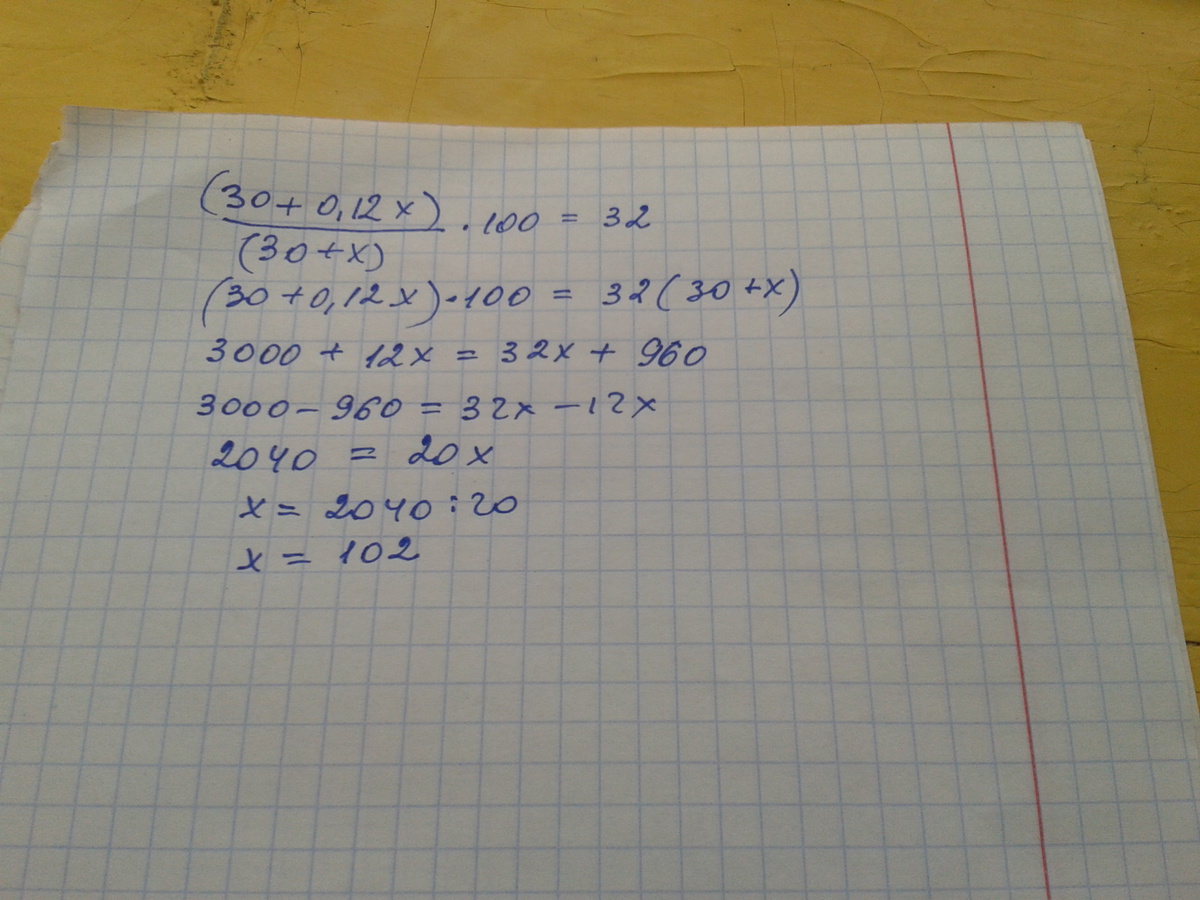 (30 + 0,12x)
(30 + x)
· 100 = 32
(30 + 0,12x) · 100 = 32 (30 + x)
3000 + 12x = 32x + 960
3000 - 960 = 32x - 12x
2040 = 20x
x = 2040 : 20
x = 102